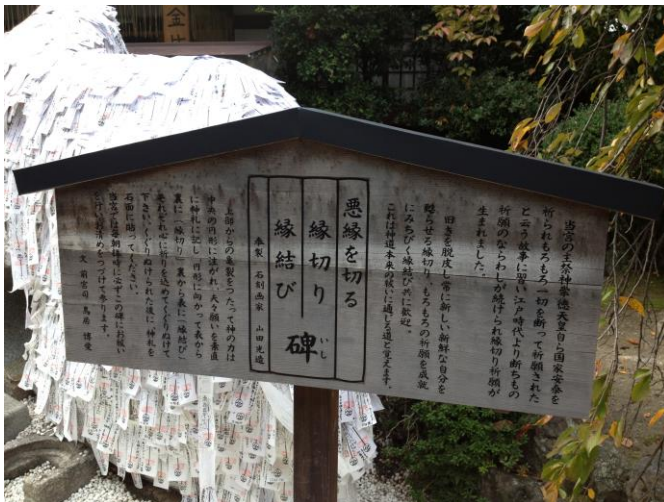 当宮の主祭神崇徳天皇自ら国家安泰を
祈られもろもろ一切を断って祈願された
と云う故事に習い江戸時代より断ちもの
祈願のならわしが続けられ縁切り祈願が
生まれました。
旧きを脱皮し常に新しい新鮮な自分を
甦らせる縁切り、もろもろの祈願を成就
にみちびく縁結び共に歓迎。
これは神道本来の祓いに通じる道と覚えます。
悪縁を切る
縁切り
縁結び
碑
いし
奉製 石刻画家 山田光造
上部からの亀裂をつたって神の力は
中央の円形に注がれ、夫々願いを素直
に神札に記し、円形に向かって表から
裏に「縁切り」裏から表に「縁結び」
それぞれ心に祈りを込めてくぐりぬけて
下さい。くぐりぬけられた後に神札を
石面に貼ってください。
当宮では毎朝拝時に必ずこの碑にお祓い
を行いお清めをつづけて参ります。
文 前宮司 鳥居 博愛
金